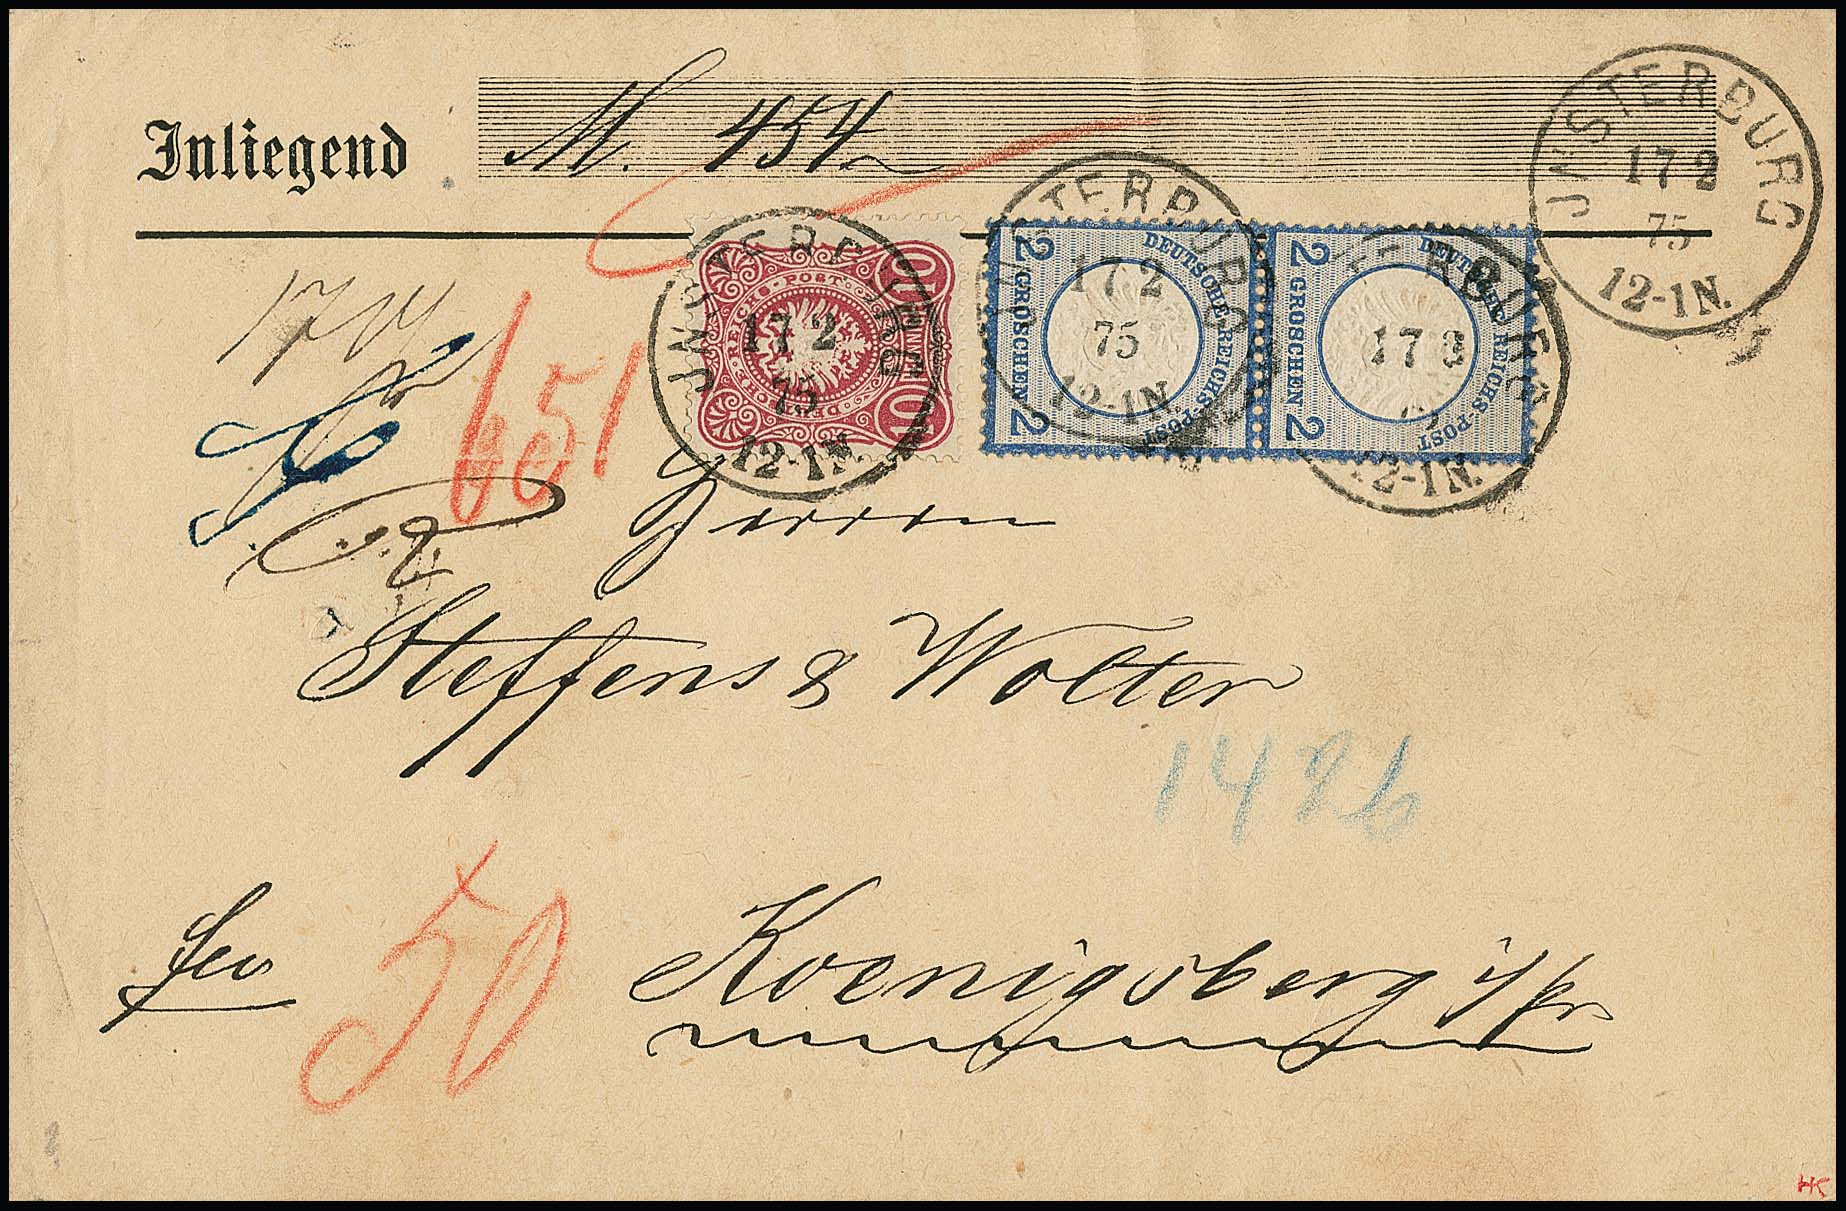 Inliegend M. 454
JNSTERBURG
17 2
75
12-1N.
JNSTERBURG
17 2
75
12-1N.
10 PFENNIGE 10
DEUTSCHE REICHS-POST
JNSTERBURG
17 2
75
12-1N.
2 GROSCHEN 2
DEUTSCHE REICHS-POST
JNSTERBURG
17 2
12-1N.
2 GROSCHEN 2
DEUTSCHE REICHS-POST
651
Herren
Steffens & Wolter
1426
fco
50
Koenigsberg i/pr
HK